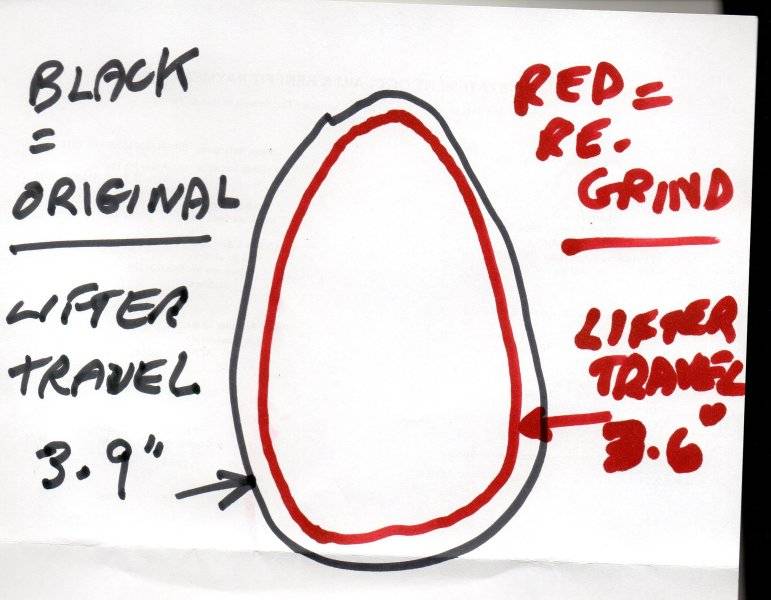 BLACK
=
ORIGINAL
LIFTER
TRAVEL
3.9"
RED =
RE.
GRIND
LIFTER
TRAVEL
3.6"